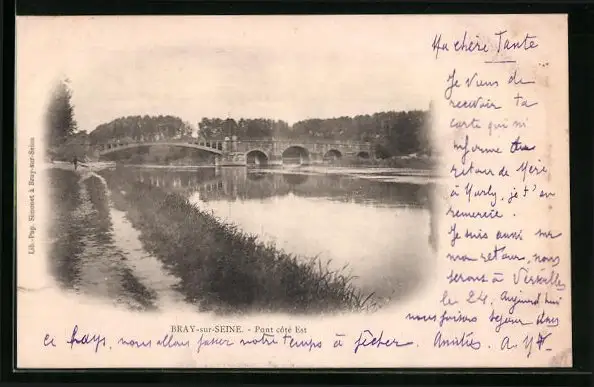 Ma chère Tante
Je viens de
recevoir ta
carte qui m'
informe du
retour de Mère
à Marly, je t'en
remercie.
Je suis aussi sur
mon retour, nous
serons à Versailles
le 24, aujourd'hui
nous faisons séjour dans
ce pays, nous allons passer notre temps à pêcher. Amitiés.
BRAY-sur-SEINE. - Pont côté Est
Lib.-Pap. Simonet à Bray-sur-Seine